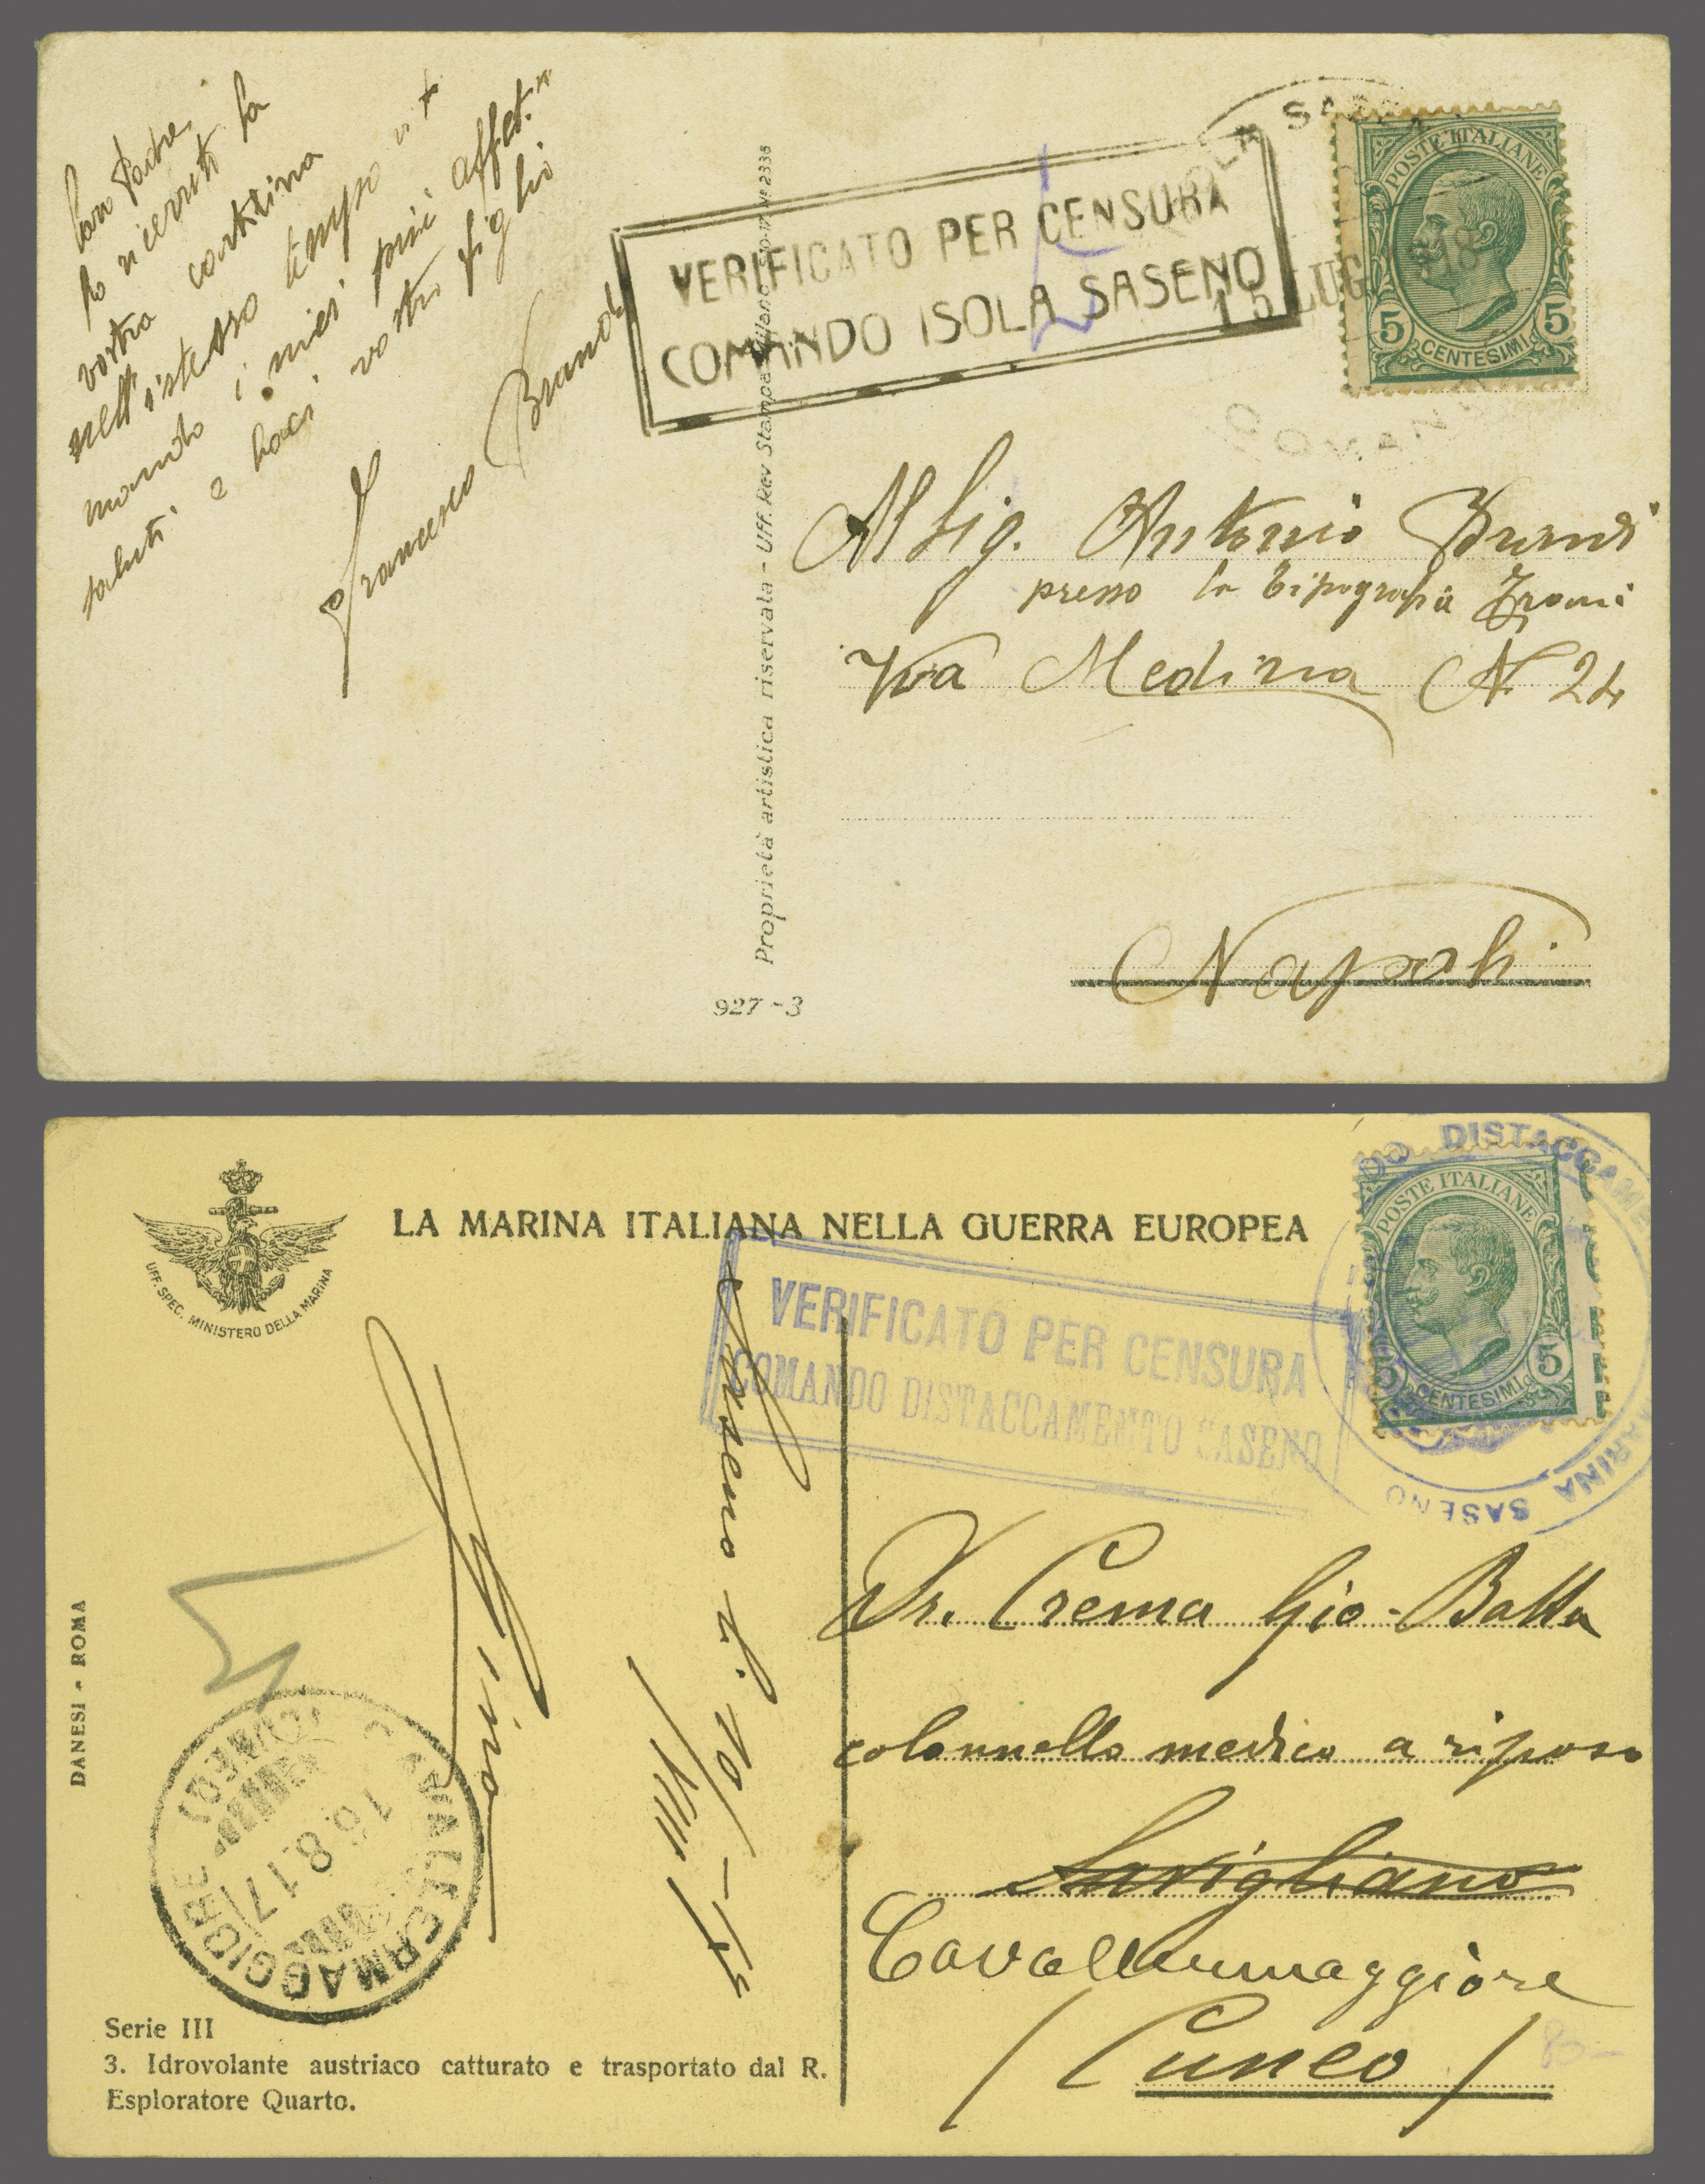 Caro Padre,
ho ricevuto la
vostra cartolina
nell'istesso tempo vi
mando i miei più affet.ti
saluti e baci vostro figlio
Francesco
VERIFICATO PER CENSURA
COMANDO ISOLA SASENO
15 LUG 18
POSTE ITALIANE
5 5
CENTESIMI
Proprietà artistica riservata - Uff. Rev Stampa Milano
927-3
Al Sig. Antonio
presso la tipografia
Via Medina N 24
Napoli
LA MARINA ITALIANA NELLA GUERRA EUROPEA
UFF. SPEC. MINISTERO DELLA MARINA
VERIFICATO PER CENSURA
COMANDO DISTACCAMENTO SASENO
DISTACCAMENTO MARINA SASENO
POSTE ITALIANE
5 5
CENTESIMI
Saseno
Dr. Crema Gio-Batta
colonnello medico a riposo
Savigliano
Cavallermaggiore
(Cuneo)
CAVALLERMAGGIORE
(CUNEO)
16.8.17
DANESI - ROMA
Serie III
3. Idrovolante austriaco catturato e trasportato dal R.
Esploratore Quarto.